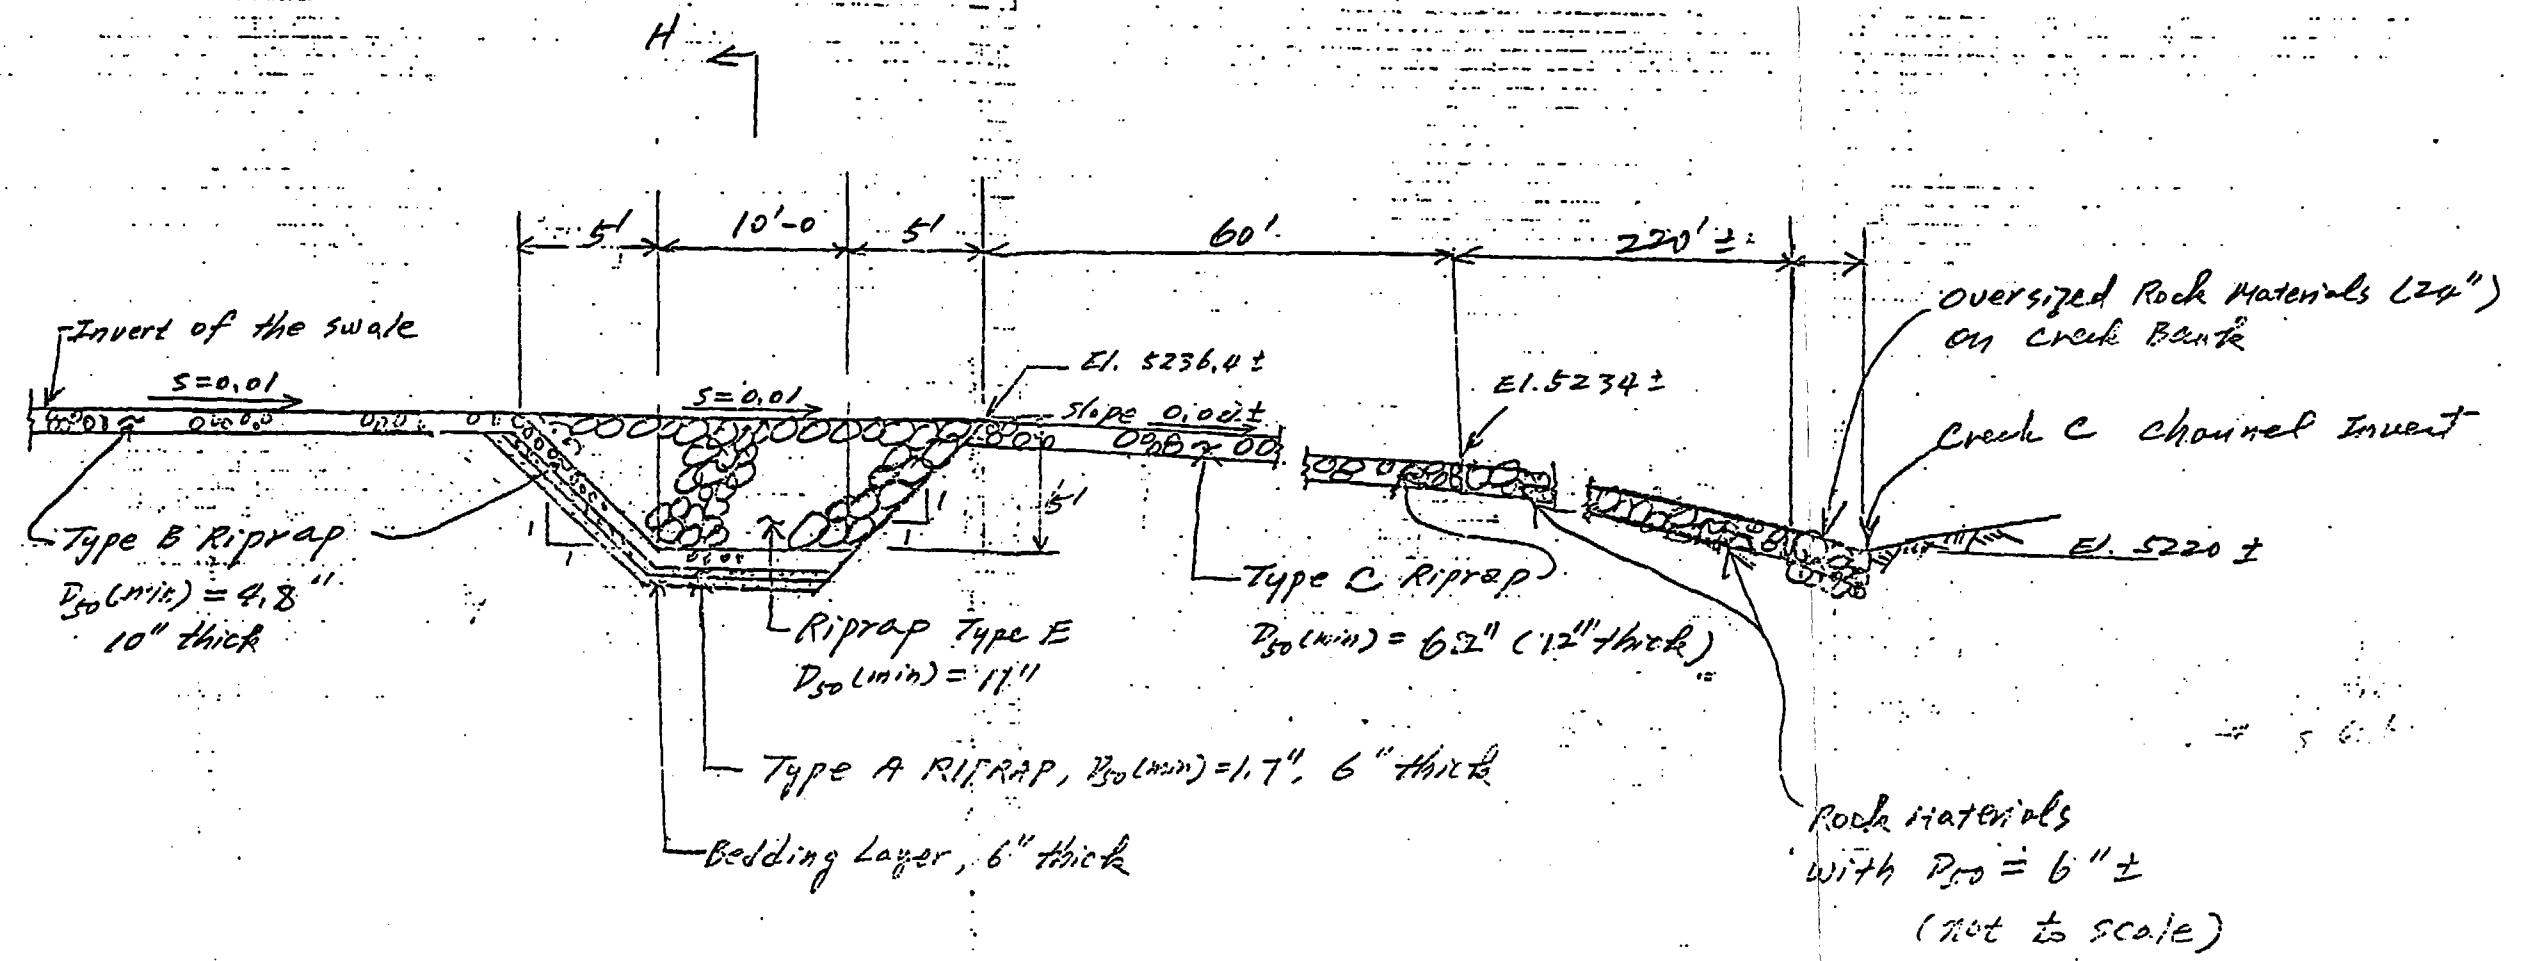 H
5'
10'-0
5'
60'
220' ±
Oversized Rock Materials (24")
on Creek Bank
Invert of the swale
El. 5236.4 ±
El. 5234 ±
S=0.01
S=0.01
slope
Creek C Channel Invert
1
1
1
1
5'
El. 5220 ±
Type B Riprap
D50 (min) = 4.8"
10" thick
Type C Riprap
D50 (min) = (12" thick)
Riprap Type E
D50 (min) =
Type A RIPRAP, D50 (min) = 1.7", 6" thick
Bedding Layer, 6" thick
Rock Materials
with D50 = 6" ±
(not to scale)